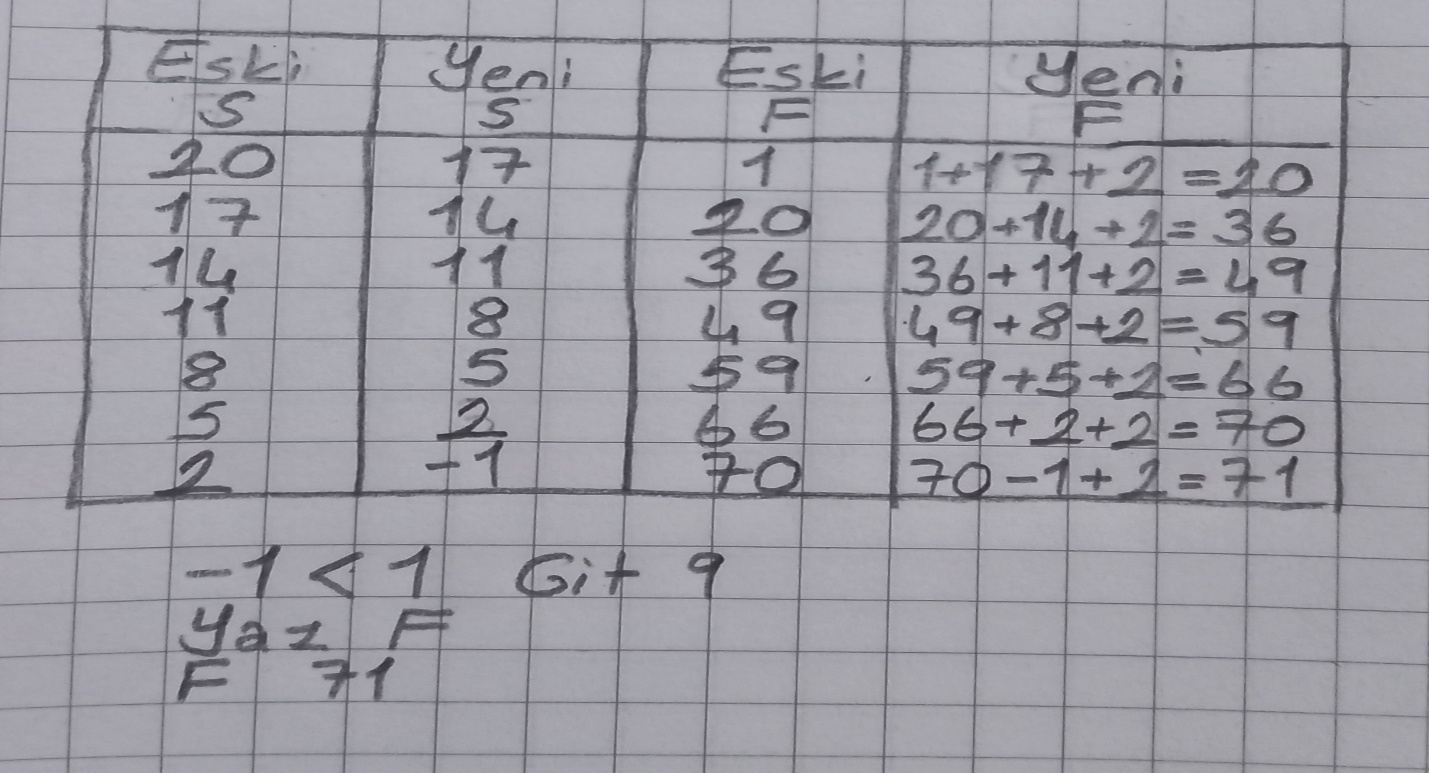 Eski S Yeni S Eski F Yeni F
20 17 1 1+17+2=20
17 14 20 20+14+2=36
14 11 36 36+11+2=49
11 8 49 49+8+2=59
8 5 59 59+5+2=66
5 2 66 66+2+2=70
2 -1 70 70-1+2=71
-1<1 Git 9
Yaz F
F 71